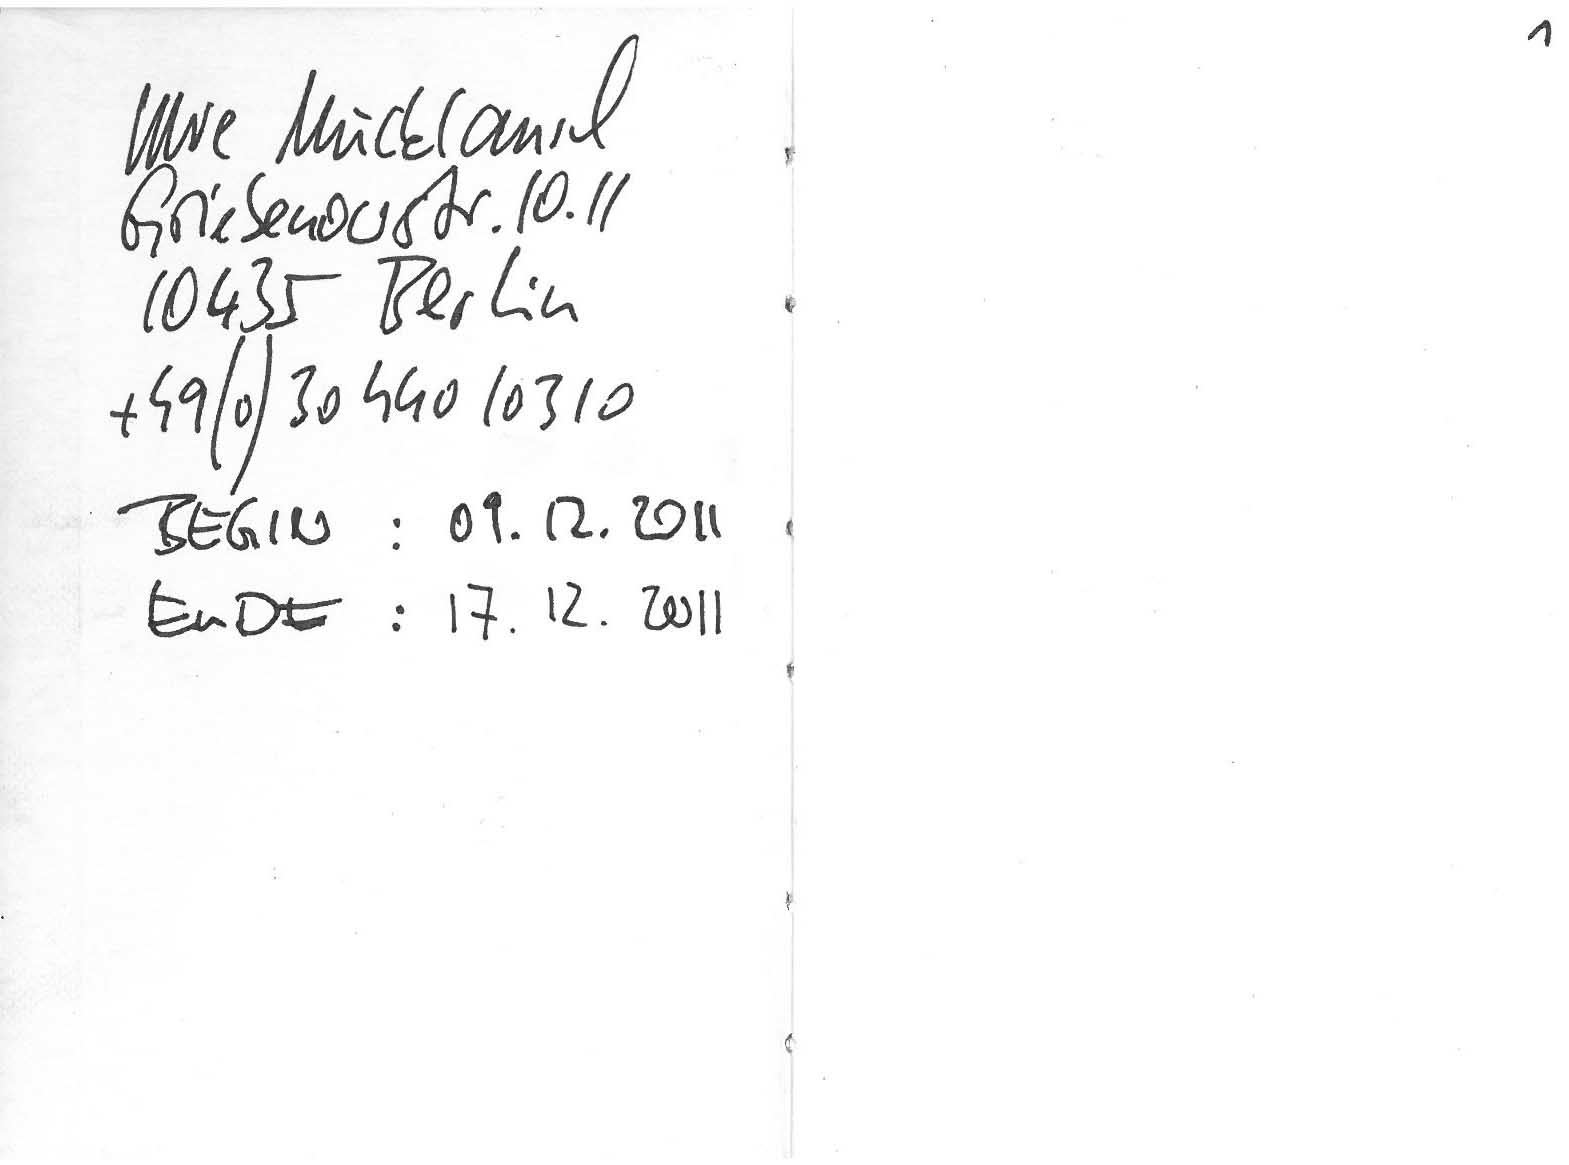 Uwe Mückla
Griebenowstr. 10.11
10435 Berlin
+49(0) 30 440 10310
BEGIN : 09. 12. 2011
EnDE : 17. 12. 2011
1